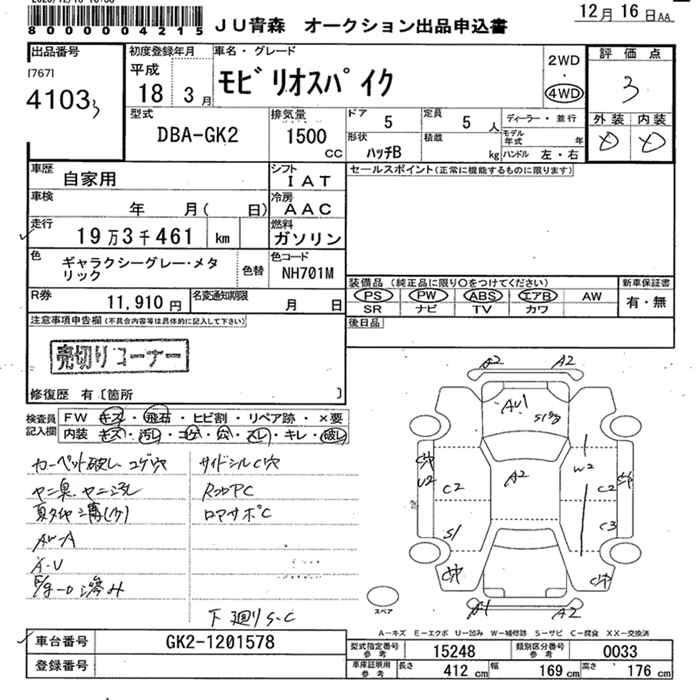 80000004215
JU青森 オークション出品申込書
12月16日AA
出品番号
[767]
4103
初度登録年月
平成
18 3月
車名・グレード
モビリオスパイク
2WD
・
4WD
評価点
3
外装 内装
型式
DBA-GK2
排気量
1500
CC
ドア
5
定員
5 人
ディーラー・並行
形状
ハッチB
積載
kg
モデル年式
年
ハンドル 左・右
車歴
自家用
シフト
IAT
セールスポイント(正常に機能するものに限ります)
車検
年 月( 日)
冷房
AAC
走行
19万3千461 km
燃料
ガソリン
色
ギャラクシーグレー・メタ
リック
色替
色コード
NH701M
装備品(純正品に限り○をつけてください)
新車保証書
PS PW ABS エアB AW
有・無
SR ナビ TV カワ
R券
11,910 円
名変通知期限
月 日
後日品
注意事項申告欄(不具合内容等は具体的に記入して下さい)
売切りコーナー
修復歴 有〔箇所 〕
検査員
記入欄
FW キズ・飛石・ヒビ割・リペア跡・×要
内装 キズ・汚れ・コゲ・穴・スレ・キレ・破れ
カーペット破レ コゲ穴
サイドシルC穴
ヤニ臭.ヤニ汚レ
ロアサポC
下廻りS-C
A2 A2
AU1
A2
U2
C2
S1
W2
C2
C3
A1 A2
スペア
A-キズ E-エクボ U-凹み W-補修跡 S-サビ C-腐食 XX-交換済
車台番号
GK2-1201578
登録番号
型式指定番号
参考
15248
類別区分番号
参考
0033
車庫証明用
参考
長さ 412 cm 幅 169 cm 高さ 176 cm